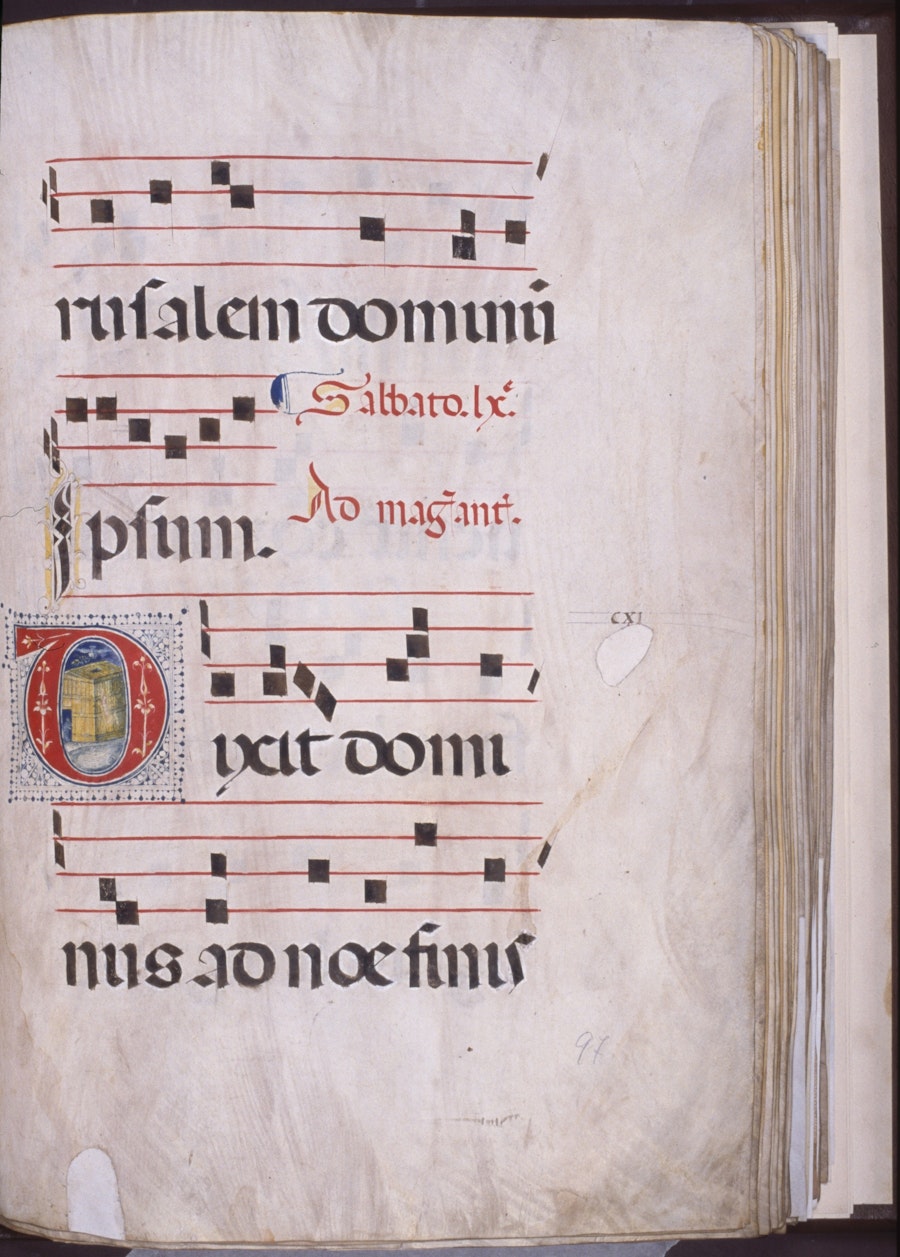 rusalem dominū
Sabbato.lxͤ.
ipsum. Ad mag̃.ant̃.
CXI
Dixit domi
nus ad noe finis
97